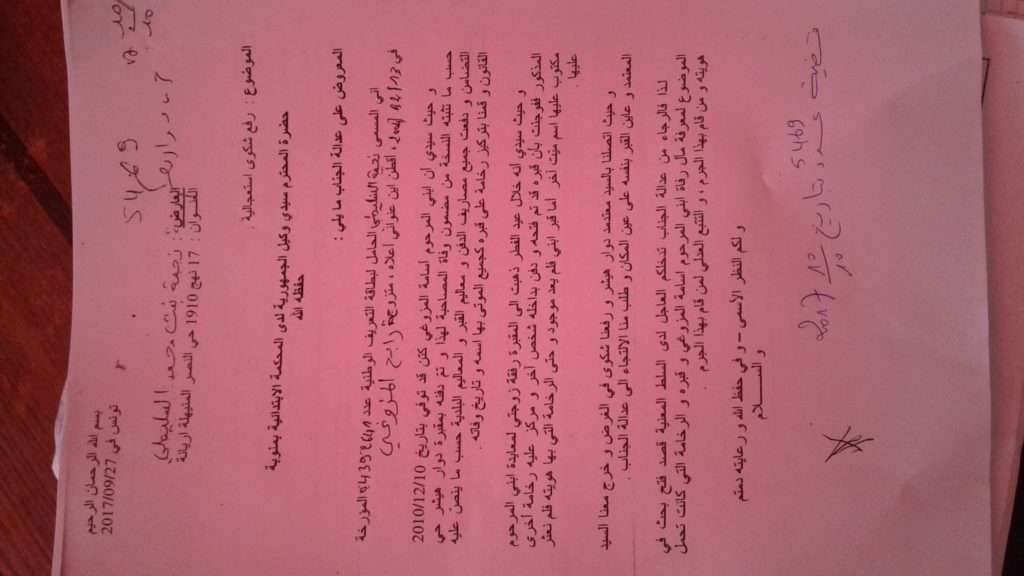 بسم الله الرحمان الرحيم
تونس في 2017/09/27
5469
العارض : نجمة بنت محمد السليطي
العنوان : 17 نهج 1910 حي النصر المنيهلة اريانة
الموضوع : رفع شكوى استعجالية .
حضرة المحترم سيدي وكيل الجمهورية لدى المحكمة الابتدائية بمنوبة
حفظه الله
المعروض على عدالة الجناب ما يلي :
اني المسمى نجمة السليطي الحامل لبطاقة التعريف الوطنية عدد المؤرخة
في أقطن ابن عنواني اعلاه، متزوجة رابح المزوغي
و حيث سيدي أن ابني المرحوم أسامة المزوغي كان قد توفي بتاريخ 2010/12/10
حسب ما تثبته النسخة من مضمون وفاة المصاحبة لهذا و تم دفنه بمقبرة دوار هيشر حي
التضامن و دفعت جميع مصاريف الدفن و معاليم القبر و المعاليم البلدية حسب ما ينص عليه
القانون و قمنا بتركيز رخامة على قبره كجميع الموتى بها اسمه و تاريخ وفاته .
و حيث سيدي أنه خلال عيد الفطر ذهبت الى المقبرة رفقة زوجتي لمعايدة ابني المرحوم
المذكور ففوجئت بأن قبره قد تم فتحه و دفن بداخله شخص آخر و مركز عليه رخامة أخرى
مكتوب عليها اسم ميّت آخر أما قبر ابني فلم يعد موجود و حتى الرخامة التي بها هويته فلم نعثر
عليها
و حيث اتصلنا بالسيد معتمد دوار هيشر و رفعنا شكوى في الغرض و خرج معنا السيد
المعتمد و عاين القبر بنفسه على عين المكان و طلب منا الاتجاه الى عدالة الجناب.
لذا فالرجاء من عدالة الجناب تدخلكم العاجل لدى السلط المعنية قصد فتح بحث في
الموضوع لمعرفة مآل رفاة ابني المرحوم اسامة المزوغي و قبره و الرخامة التي كانت تحمل
هويته و من قام بهذا الجرم، و التتبع العدلي لمن قام بهذا الجرم.
و لكم النظر الأسمى – و في حفظ الله و رعايته دمتم
و الســـــلام
قضية عدد 5469
بتاريخ 10/10 2017